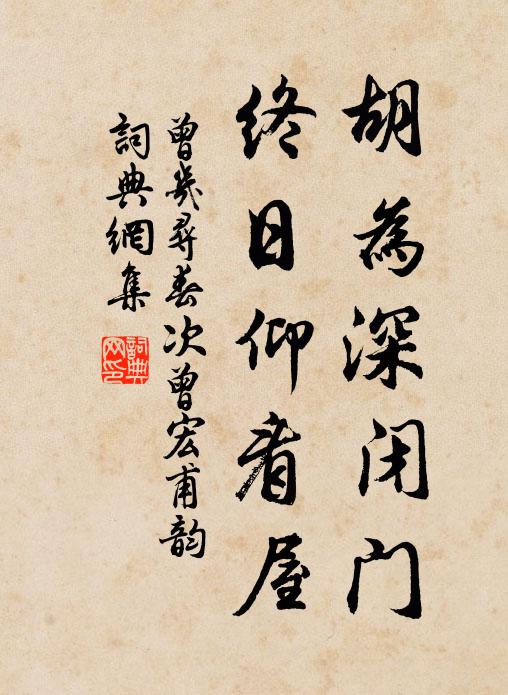 胡為深闭门
终日仰看屋
曾幾尋春次曾宏甫韵
詞典網集
詞典网印